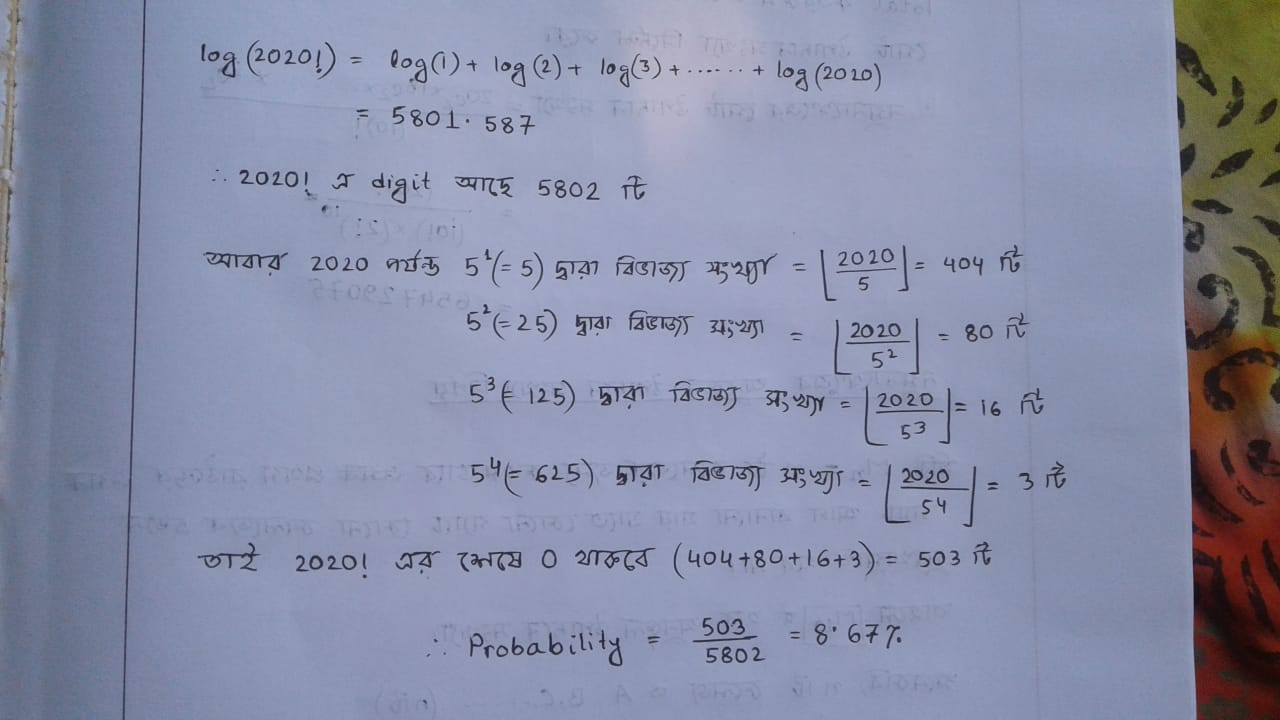 log(2020!) = log(1) + log(2) + log(3) + ...... + log(2020)
= 5801.587
∴ 2020! এ digit আছে 5802 টি
আবার 2020 পর্যন্ত 5¹(= 5) দ্বারা বিভাজ্য সংখ্যা = ⌊2020/5⌋ = 404 টি
5²(= 25) দ্বারা বিভাজ্য সংখ্যা = ⌊2020/5²⌋ = 80 টি
5³(= 125) দ্বারা বিভাজ্য সংখ্যা = ⌊2020/5³⌋ = 16 টি
5⁴(= 625) দ্বারা বিভাজ্য সংখ্যা = ⌊2020/5⁴⌋ = 3 টি
তাই 2020! এর শেষে 0 থাকবে (404+80+16+3) = 503 টি
∴ Probability = 503/5802 = 8.67%